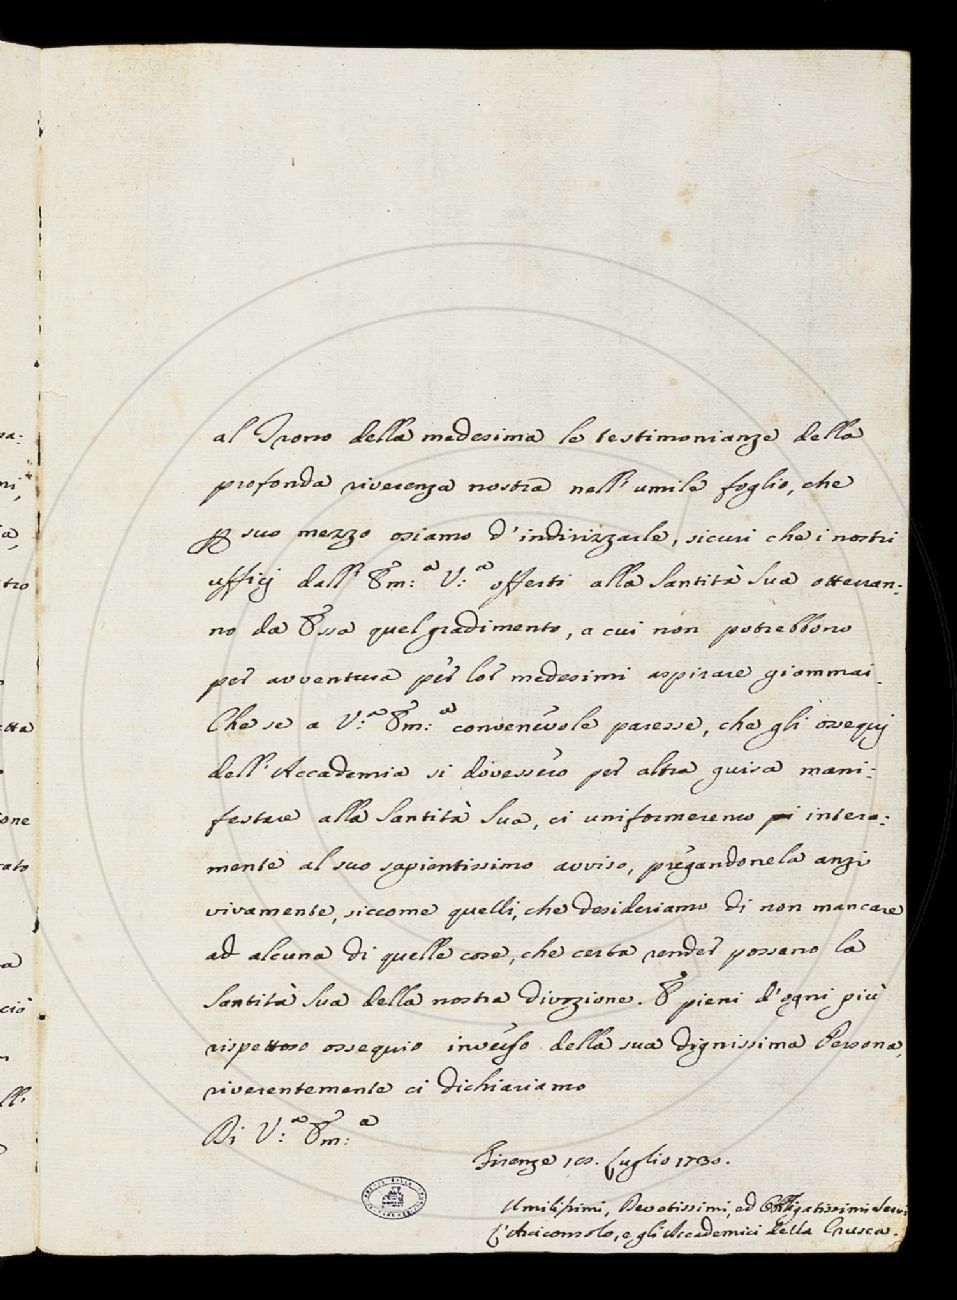 al Trono della medesima le testimonianze della
profonda riverenza nostra nell' umile foglio, che
p suo mezzo osiamo d'indirizzarle, sicuri che i nostri
uffizj dall' Em:ª V:ª offerti alla Santità Sua otterran:
no da Essa quel gradimento, a cui non potrebbono
per avventura per lor medesimi aspirare giommai.
Che se a V:ª Em:ª convenevole paresse, che gli ossequj
dell' Accademia si dovessero per altra guisa mani:
festare alla Santità Sua, ci uniformeremo intera:
mente al suo sapientissimo avviso, pregandonela anzi
vivamente, siccome quelli, che desideriamo di non mancare
ad alcuna di quelle cose, che certa render possano la
Santità Sua della nostra divozione. E pieni d'ogni più
rispettoso ossequio inverso della sua dignissima Persona,
riverentemente ci dichiariamo
Di V:ª Em:ª
Firenze 10. Luglio 1730.
Umilissimi, Devotissimi, ed Obbligatissimi Servi
L'Arciconsolo, e gli Accademici della Crusca.
ma:
ni,
ia,
tro
etta
ione
rato
a
ciò
ll'